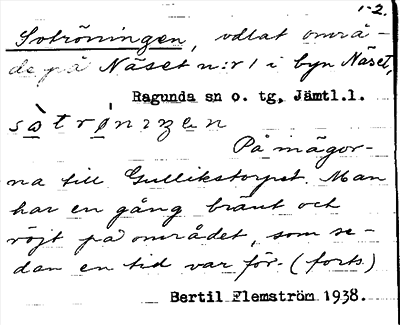 1-2.
Sotröningen, odlat områ-
de på Näset n:r 1 i byn Näset,
Ragunda sn o. tg, Jämtl.l.
På mägor-
na till Gullikstorpet. Man
har en gång bränt och
röjt på området, som se-
dan en tid var för- (forts)
Bertil Flemström 1938.